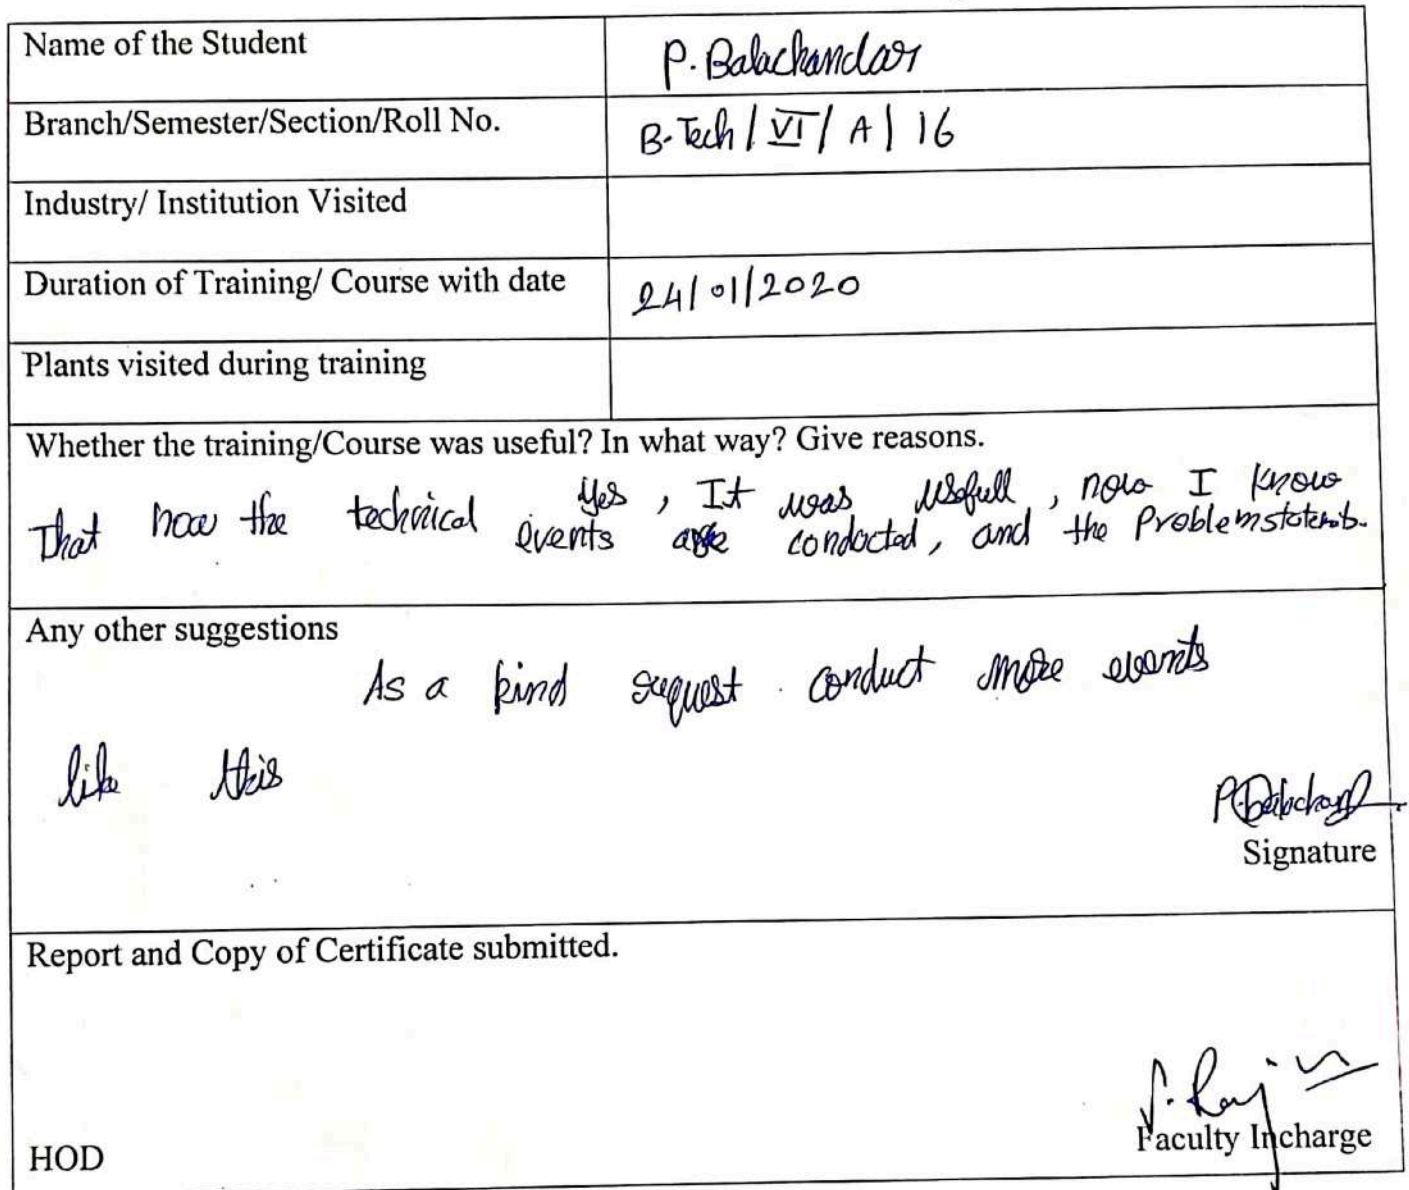 Name of the Student P. Balachandar
Branch/Semester/Section/Roll No. B-Tech / VI / A / 16
Industry/ Institution Visited
Duration of Training/ Course with date 24/01/2020
Plants visited during training
Whether the training/Course was useful? In what way? Give reasons.
Yes, It was usefull, now I know
That how the technical events are conducted, and the Problemstatements.
Any other suggestions
As a kind request conduct more events
like this
Signature
Report and Copy of Certificate submitted.
HOD Faculty Incharge